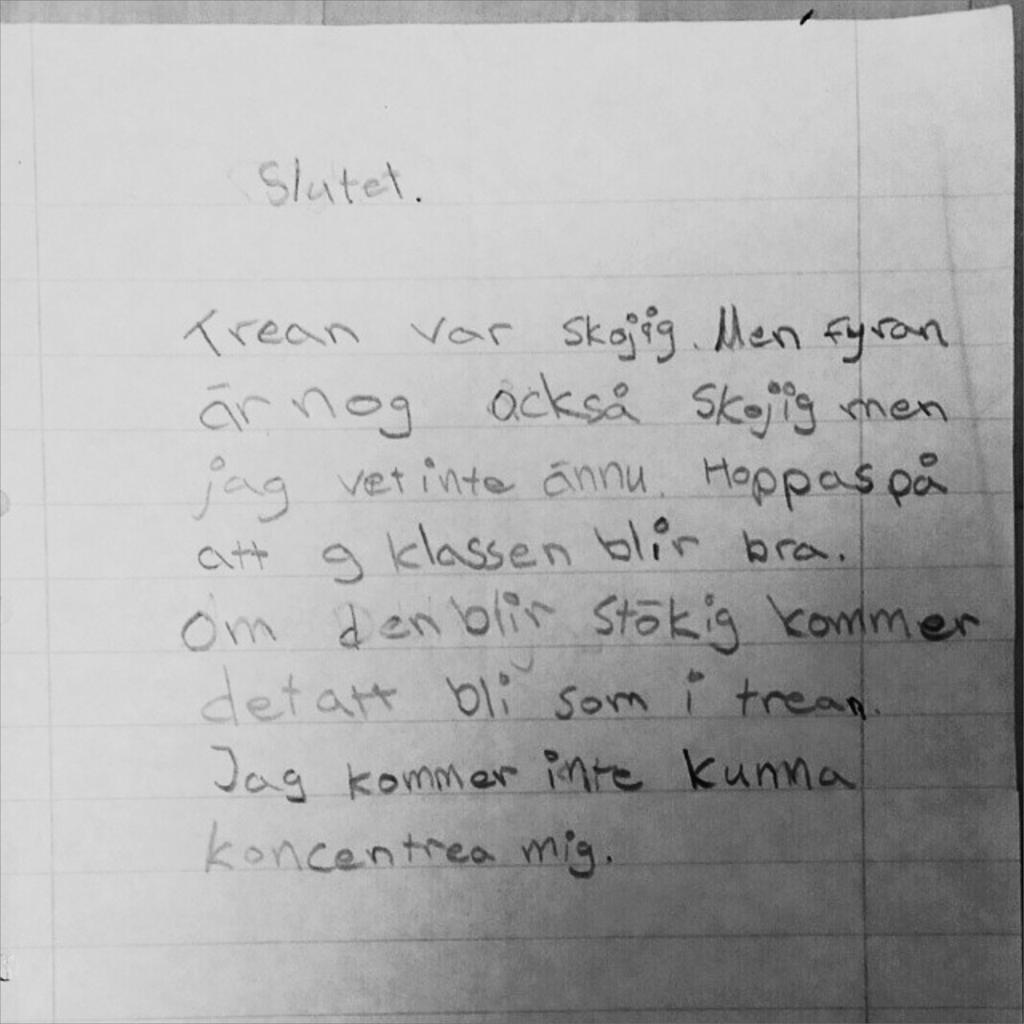 Slutet.
Trean var skojig. Men fyran
är nog också skojig men
jag vet inte ännu. Hoppas på
att g klassen blir bra.
Om den blir stökig kommer
det att bli som i trean.
Jag kommer inte kunna
koncentrea mig.